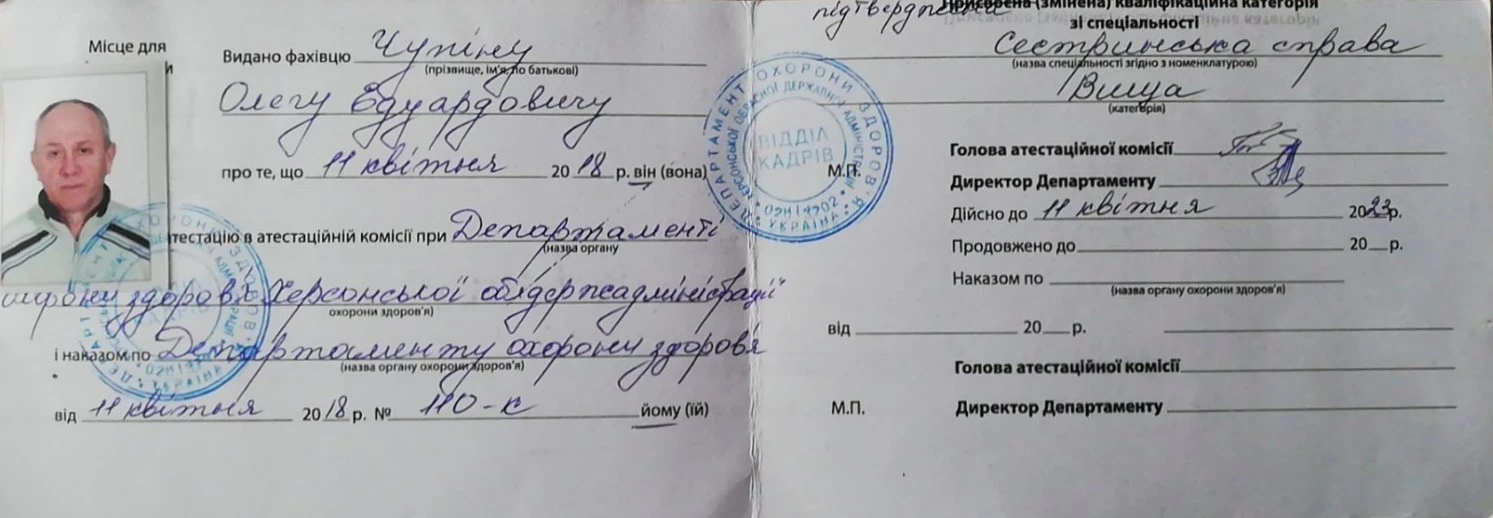 Місце для
Видано фахівцю Чупіну
(прізвище, ім'я, по батькові)
Олегу Едуардовичу
про те, що 11 квітня 2018 р. він (вона)
тестацію в атестаційній комісії при Департаменті
(назва органу
охорони здоров'я Херсонської облдержадміністрації
охорони здоров'я)
і наказом по Департаменту охорони здоров'я
(назва органу охорони здоров'я)
від 11 квітня 2018 р. № 110-к йому (їй)
ДЕПАРТАМЕНТ ОХОРОНИ ЗДОРОВ'Я
ХЕРСОНСЬКОЇ ОБЛАСНОЇ ДЕРЖАВНОЇ АДМІНІСТРАЦІЇ
ВІДДІЛ
КАДРІВ
УКРАЇНА
підтверджена
Присвоєна (змінена) кваліфікаційна категорія
зі спеціальності
Сестринська справа
(назва спеціальності згідно з номенклатурою)
Вища
(категорія)
Голова атестаційної комісії
М.П.
Директор Департаменту
Дійсно до 11 квітня 2023р.
Продовжено до 20 р.
Наказом по
(назва органу охорони здоров'я)
від 20 р.
Голова атестаційної комісії
М.П. Директор Департаменту